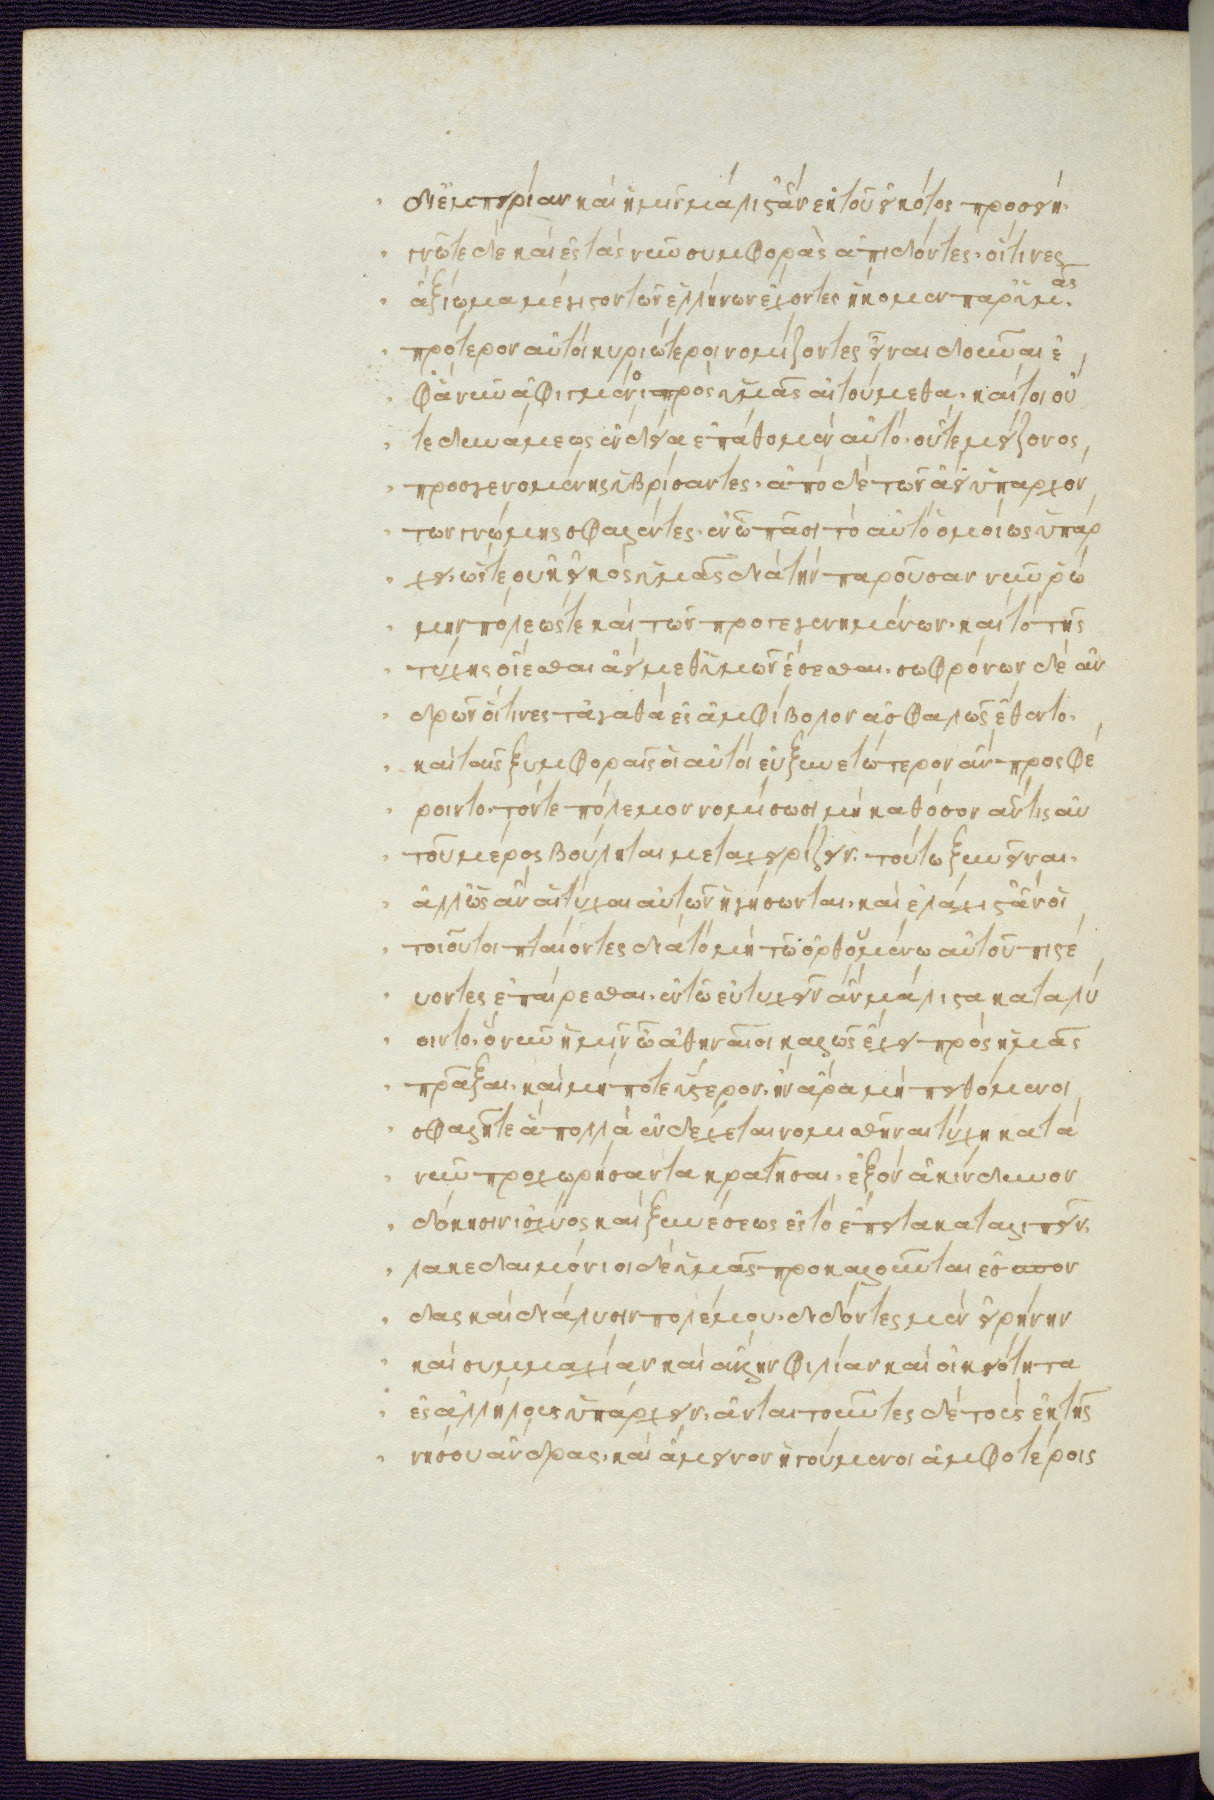 δι' ἐμπειρίαν καὶ ἡμῖν μάλιστ' ἂν ἐκ τοῦ εἰκότος προσείη·
γνῶτε δὲ καὶ ἐς τὰς νῦν συμφορὰς ἀπιδόντες. οἵτινες
ἀξίωμα μέγιστον τῶν ἑλλήνων ἔχοντες ἥκομεν παρ' ὑμᾶς.
πρότερον αὐτοὶ κυριώτεροι νομίζοντες εἶναι δοῦναι ἐ
φ' ἃ νῦν ἀφιγμένοι πρὸς ὑμᾶς αἰτούμεθα. καίτοι οὔ
τε δυνάμεως ἐνδείᾳ ἐπάθομεν αὐτό. οὔτε μείζονος
προσγενομένης ὑβρίσαντες. ἀπὸ δὲ τῶν ἀεὶ ὑπαρχόν
των γνώμης σφαλέντες. ἐν ᾧ πᾶσι τὸ αὐτὸ ὁμοίως ὑπάρ
χει. ὥστε οὐκ εἰκὸς ὑμᾶς διὰ τὴν παροῦσαν νῦν ῥώ
μην πόλεώς τε καὶ τῶν προσγεγενημένων. καὶ τὸ τῆς
τύχης οἴεσθαι ἀεὶ μεθ' ὑμῶν ἔσεσθαι. σωφρόνων δὲ ἀν
δρῶν οἵτινες τἀγαθὰ ἐς ἀμφίβολον ἀσφαλῶς ἔθεντο.
καὶ ταῖς ξυμφοραῖς οἱ αὐτοὶ εὐξυνετώτερον ἂν προσφέ
ροιντο. τόν τε πόλεμον νομίσωσι μὴ καθ' ὅσον ἄν τις αὐ
τοῦ μέρος βούληται μεταχειρίζειν. τούτῳ ξυνεῖναι.
ἀλλ' ὡς ἂν αἱ τύχαι αὐτῶν ἡγήσωνται. καὶ ἐλάχιστ' ἂν οἱ
τοιοῦτοι πταίοντες διὰ τὸ μὴ τῷ ὀρθουμένῳ αὐτοῦ πιστε
ύοντες ἐπαίρεσθαι. ἐν τῷ εὐτυχεῖν ἂν μάλιστα καταλύ
οιντο. ὃ νῦν ἡμῖν ὦ ἀθηναῖοι καλῶς ἔχει πρὸς ἡμᾶς
πρᾶξαι. καὶ μή ποτε ὕστερον. ἢν ἄρα μὴ πειθόμενοι
σφαλῆτε ἃ πολλὰ ἐνδέχεται νομισθῆναι τύχῃ καὶ τὰ
νῦν προχωρήσαντα κρατῆσαι. ἐξὸν ἀκίνδυνον
δόκησιν ἰσχύος καὶ ξυνέσεως ἐς τὸ ἔπειτα καταλιπεῖν.
λακεδαιμόνιοι δὲ ὑμᾶς προκαλοῦνται ἐς σπον
δὰς καὶ διάλυσιν πολέμου. διδόντες μὲν εἰρήνην
καὶ συμμαχίαν καὶ ἄλλην φιλίαν καὶ οἰκειότητα
ἐς ἀλλήλους ὑπάρχειν. ἀνταιτοῦντες δὲ τοὺς ἐκ τῆς
νήσου ἄνδρας. καὶ ἄμεινον ἡγούμενοι ἀμφοτέροις